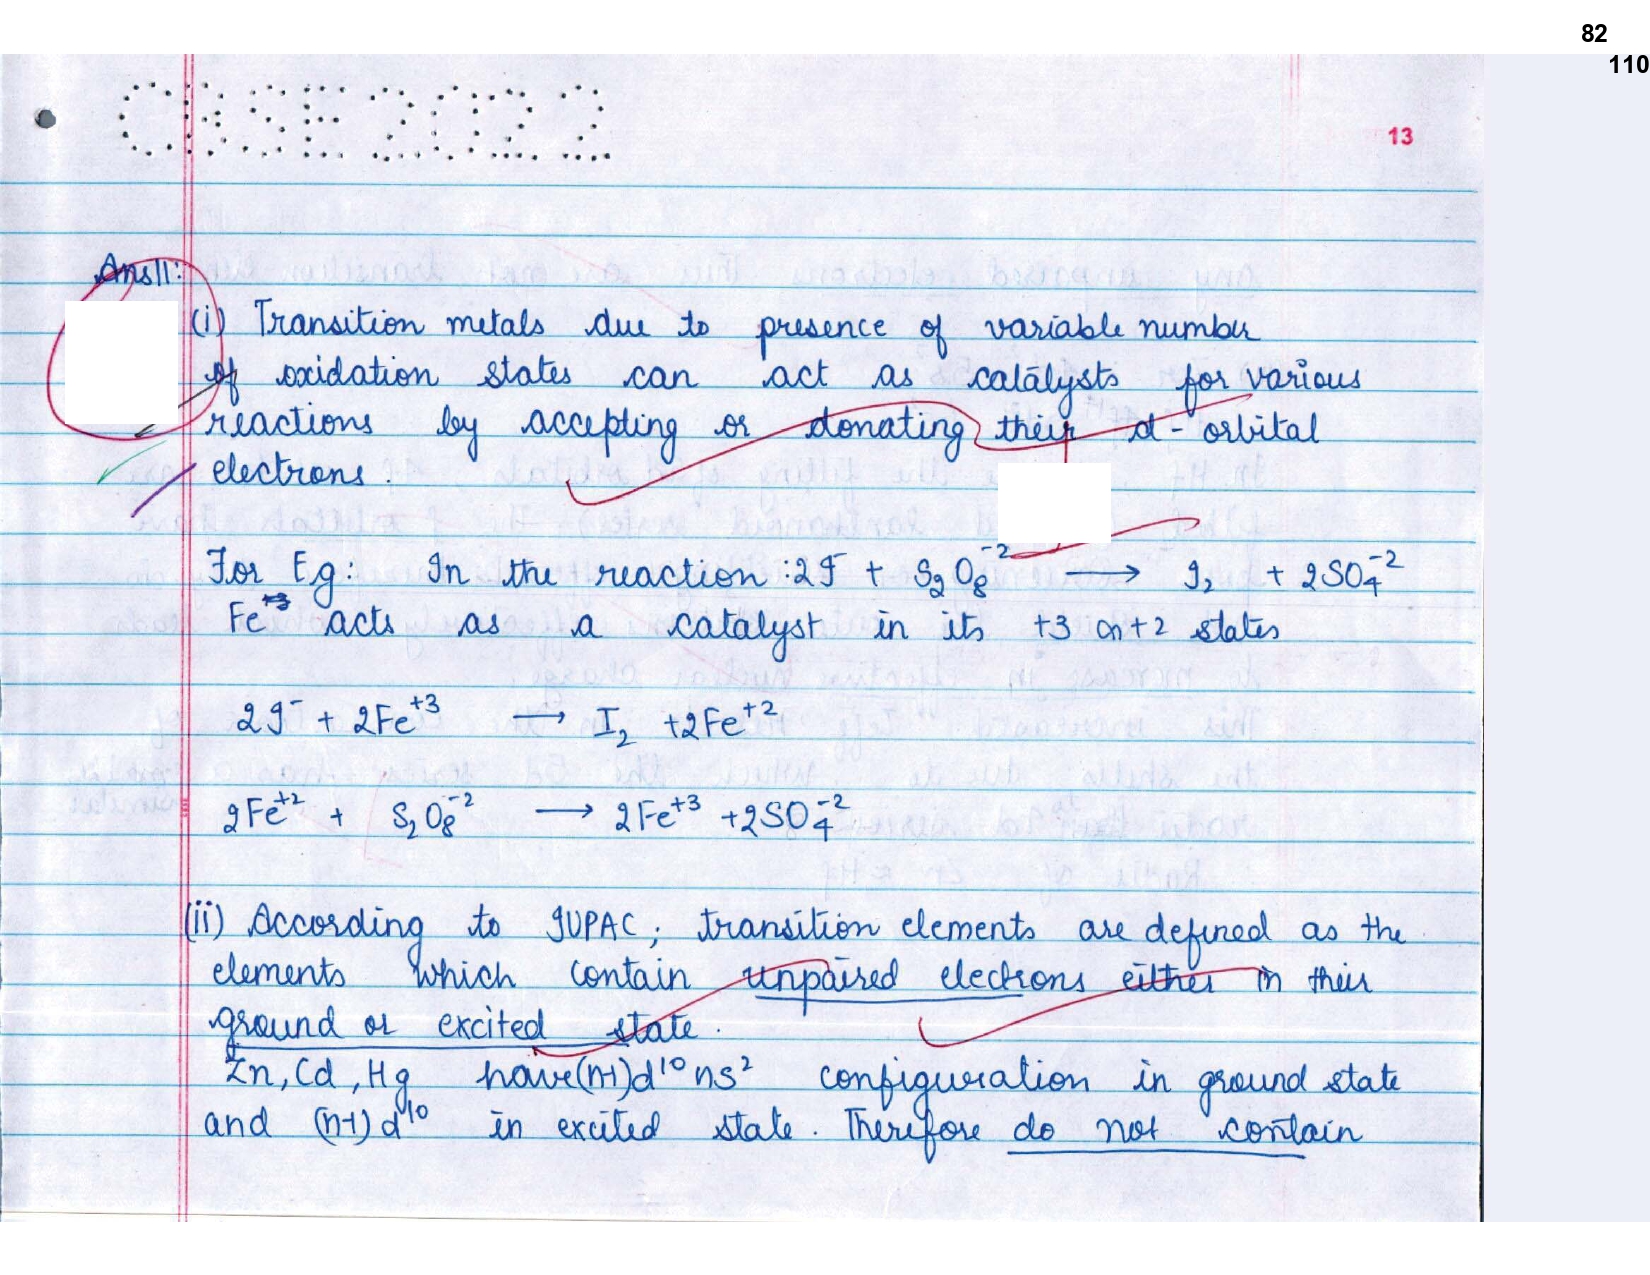 82
110
CBSE 2022
13
Ans11:
(i) Transition metals due to presence of variable number
of oxidation states can act as catalysts for various
reactions by accepting or donating their d-orbital
electrons.
For Eg: In the reaction: 2I⁻ + S₂O₈⁻² → I₂ + 2SO₄⁻²
Fe⁺³ acts as a catalyst in its +3 or +2 states
2I⁻ + 2Fe⁺³ → I₂ +2Fe⁺²
2Fe⁺² + S₂O₈⁻² → 2Fe⁺³ +2SO₄⁻²
(ii) According to IUPAC, transition elements are defined as the
elements which contain unpaired electrons either in their
ground or excited state.
Zn, Cd, Hg have (n-1)d¹⁰ns² configuration in ground state
and (n-1)d¹⁰ in excited state. Therefore do not contain